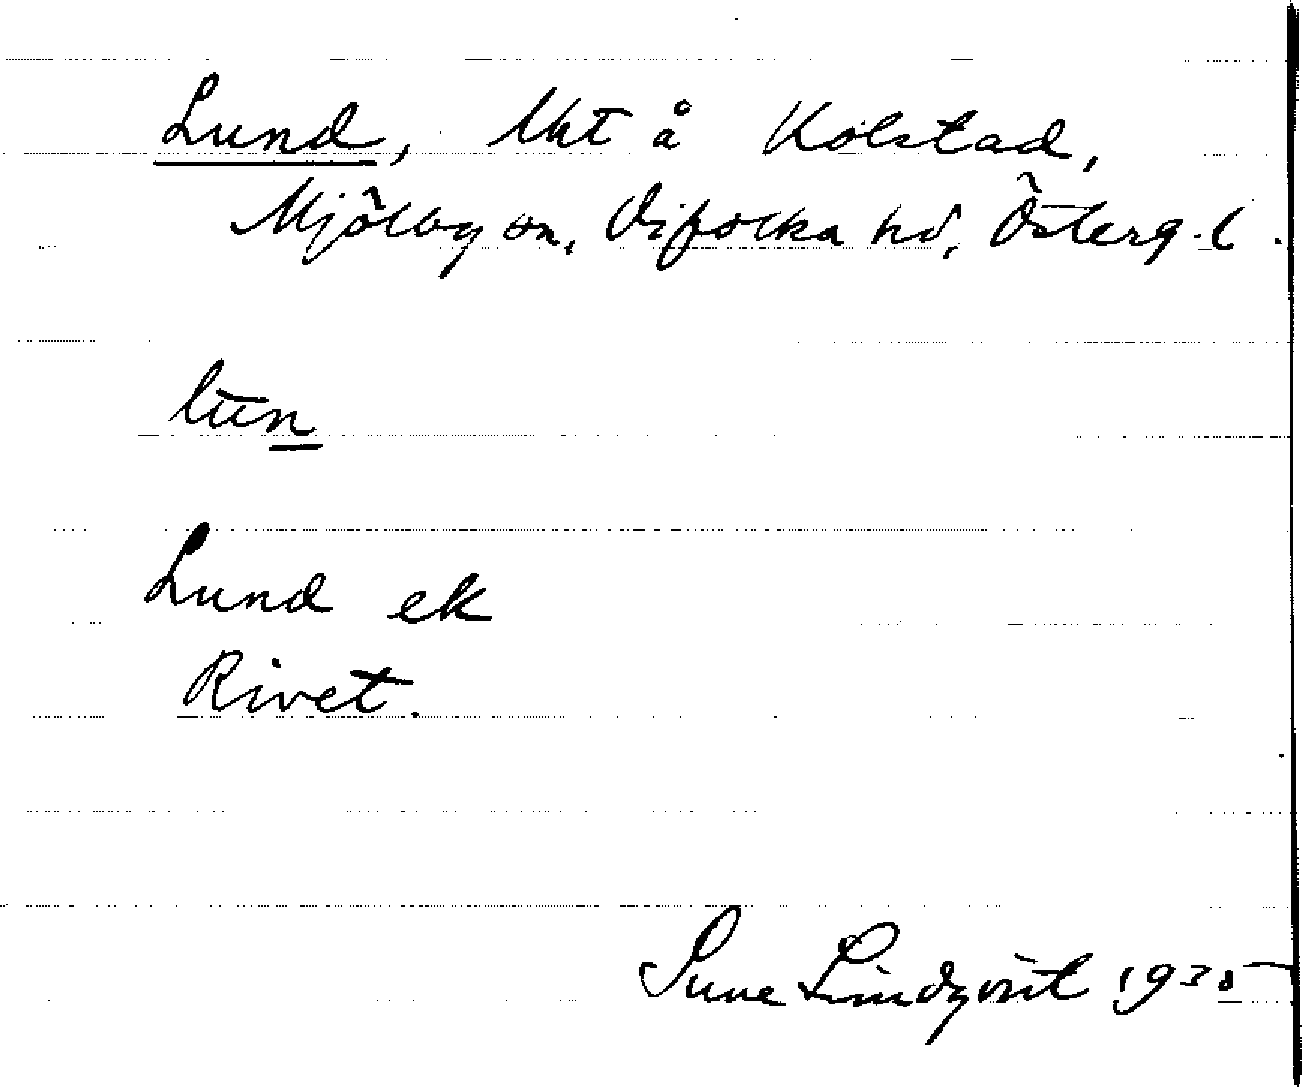 Lund, lht å Kolstad,
Mjölby sn, Vifolka hd, Österg. l.
lun
Lund ek
Rivet.
Sune Lindqvist 1935